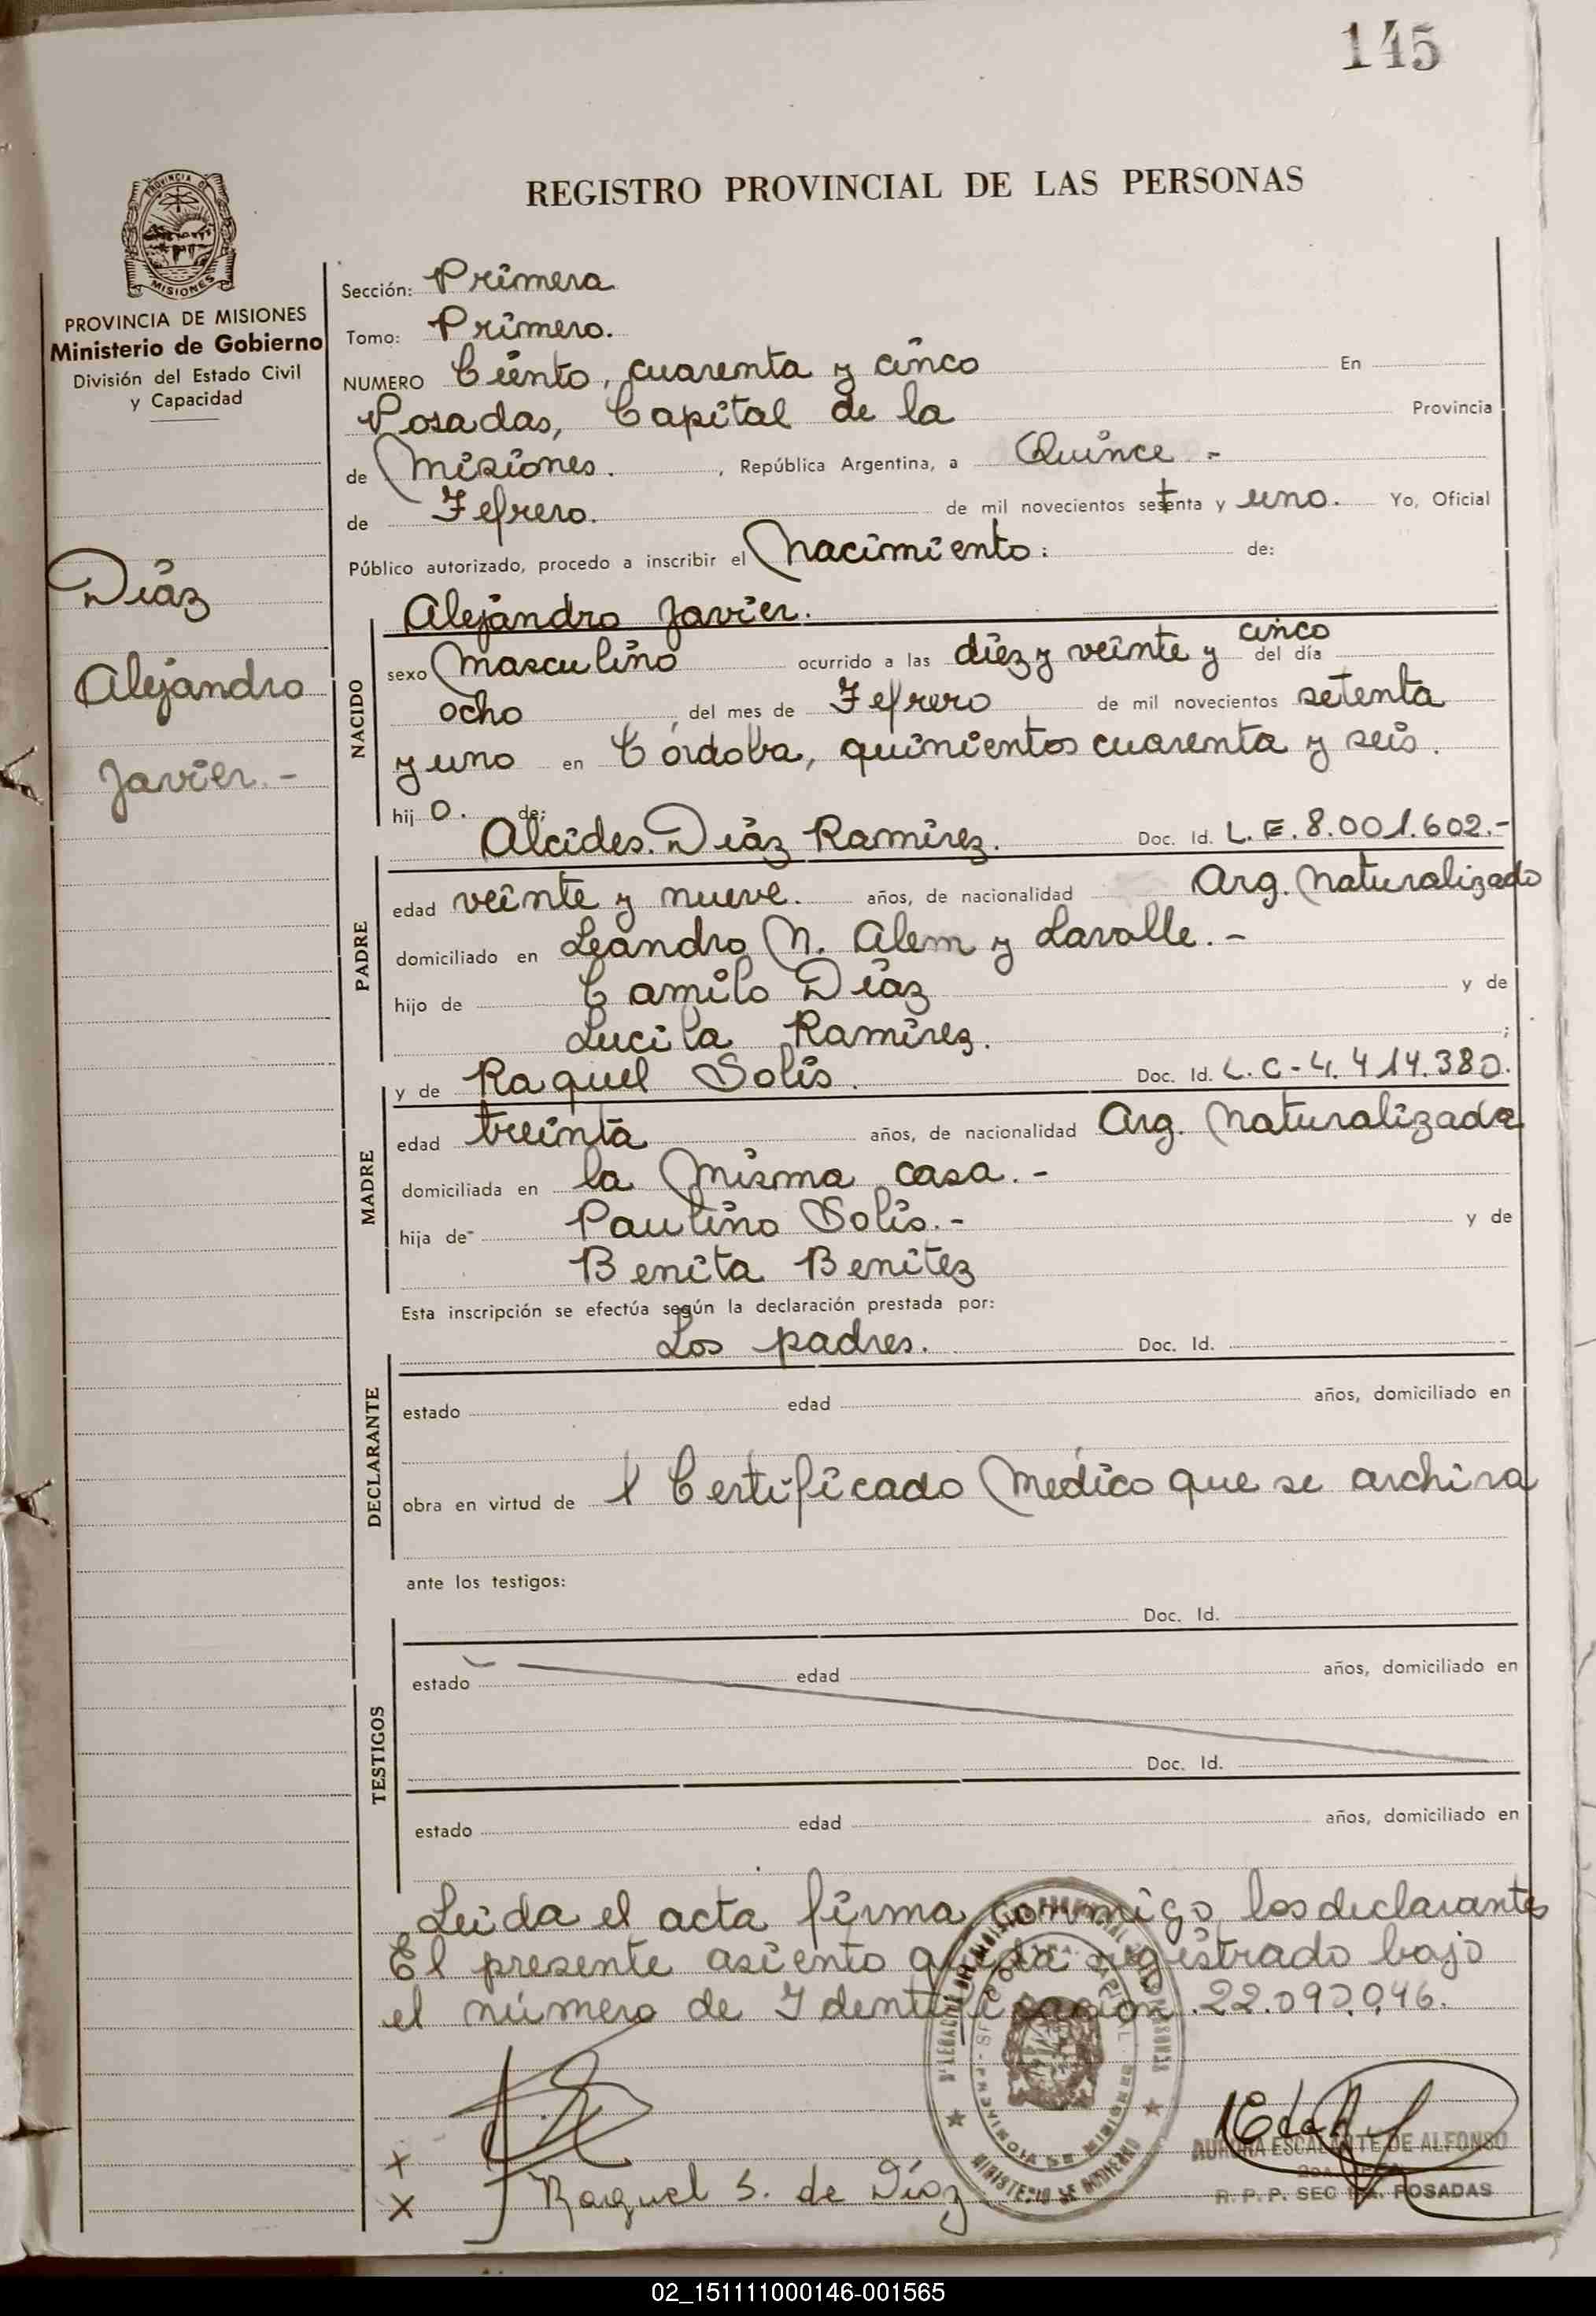 145
REGISTRO PROVINCIAL DE LAS PERSONAS
PROVINCIA DE MISIONES
PROVINCIA DE MISIONES
Ministerio de Gobierno
División del Estado Civil
y Capacidad
Díaz
Alejandro
Javier.-
Sección: Primera
Tomo: Primero.
NUMERO Ciento, cuarenta y cinco En
Posadas, Capital de la Provincia
de Misiones. , República Argentina, a Quince -
de Febrero. de mil novecientos setenta y uno. Yo, Oficial
Público autorizado, procedo a inscribir el Nacimiento: de:
NACIDO
Alejandro Javier.
sexo Masculino ocurrido a las diez y veinte y cinco del día
ocho , del mes de Febrero de mil novecientos setenta
y uno en Córdoba, quinientos cuarenta y seis.
hij o. de:
PADRE
Alcides Díaz Ramírez. Doc. Id. L.E. 8.001.602.-
edad veinte y nueve. años, de nacionalidad Arg. Naturalizado
domiciliado en Leandro N. Alem y Lavalle.-
hijo de Camilo Díaz y de
Lucila Ramírez. ;
MADRE
y de Raquel Solís. Doc. Id. L.C-4.414.380.
edad treinta años, de nacionalidad Arg. Naturalizada
domiciliada en la Misma casa.-
hija de Paulino Solís.- y de
Benita Benítez
Esta inscripción se efectúa según la declaración prestada por:
DECLARANTE
Los padres. Doc. Id.
estado edad años, domiciliado en
obra en virtud de 1 Certificado Médico que se archiva
ante los testigos:
TESTIGOS
Doc. Id.
estado edad años, domiciliado en
Doc. Id.
estado edad años, domiciliado en
Leida el acta firma conmigo los declarantes
El presente asiento queda registrado bajo
el número de Identificación 22.092.046.
x
x Raquel S. de Díaz
AURORA ESCALANTE DE ALFONSO
R. P. P. SEC POSADAS
02_151111000146-001565